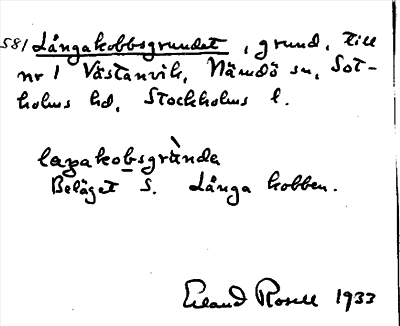 581 Långakobbsgrundet, grund, till
nr 1 Västanvik, Nämdö sn, Sot-
holms hd, Stockholms l.
laŋakobsgrùnda
Beläget S. Långa kobben.
Erland Rosell 1933